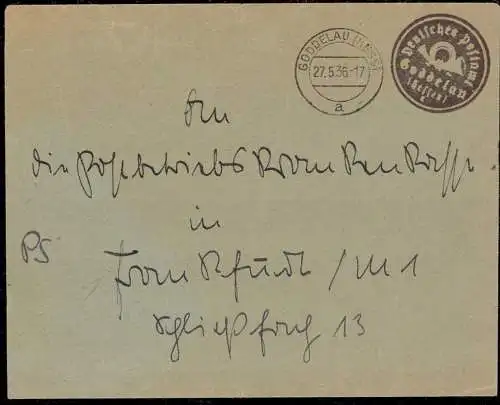 GODDELAU (HESS)
27.5.36.-17
a
Deutsches Postamt
Goddelau
(Hessen)
An
die Postbetriebskrankenkasse
in
PS
Frankfurt/M 1
Schließfach 13